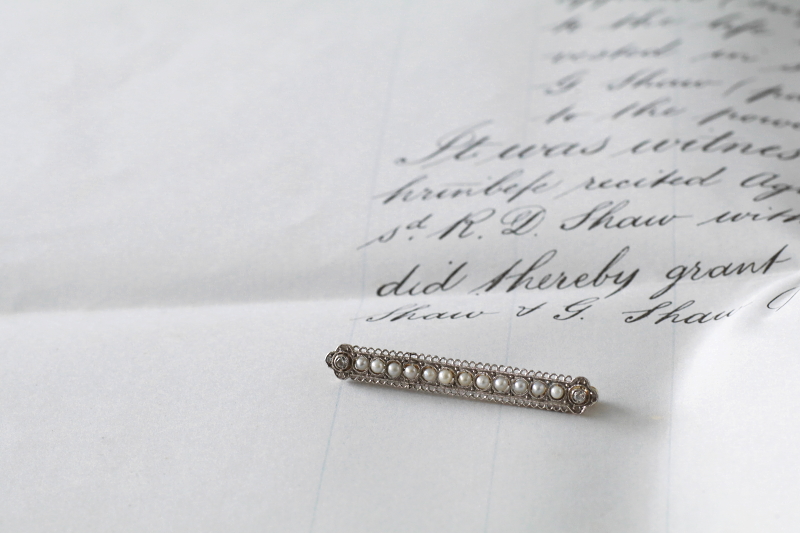 to the life
vested in
G Shaw (pa
to the powe
It was witness
recited Ag
sd. R. D. Shaw with
did thereby grant
Shaw & G. Shaw